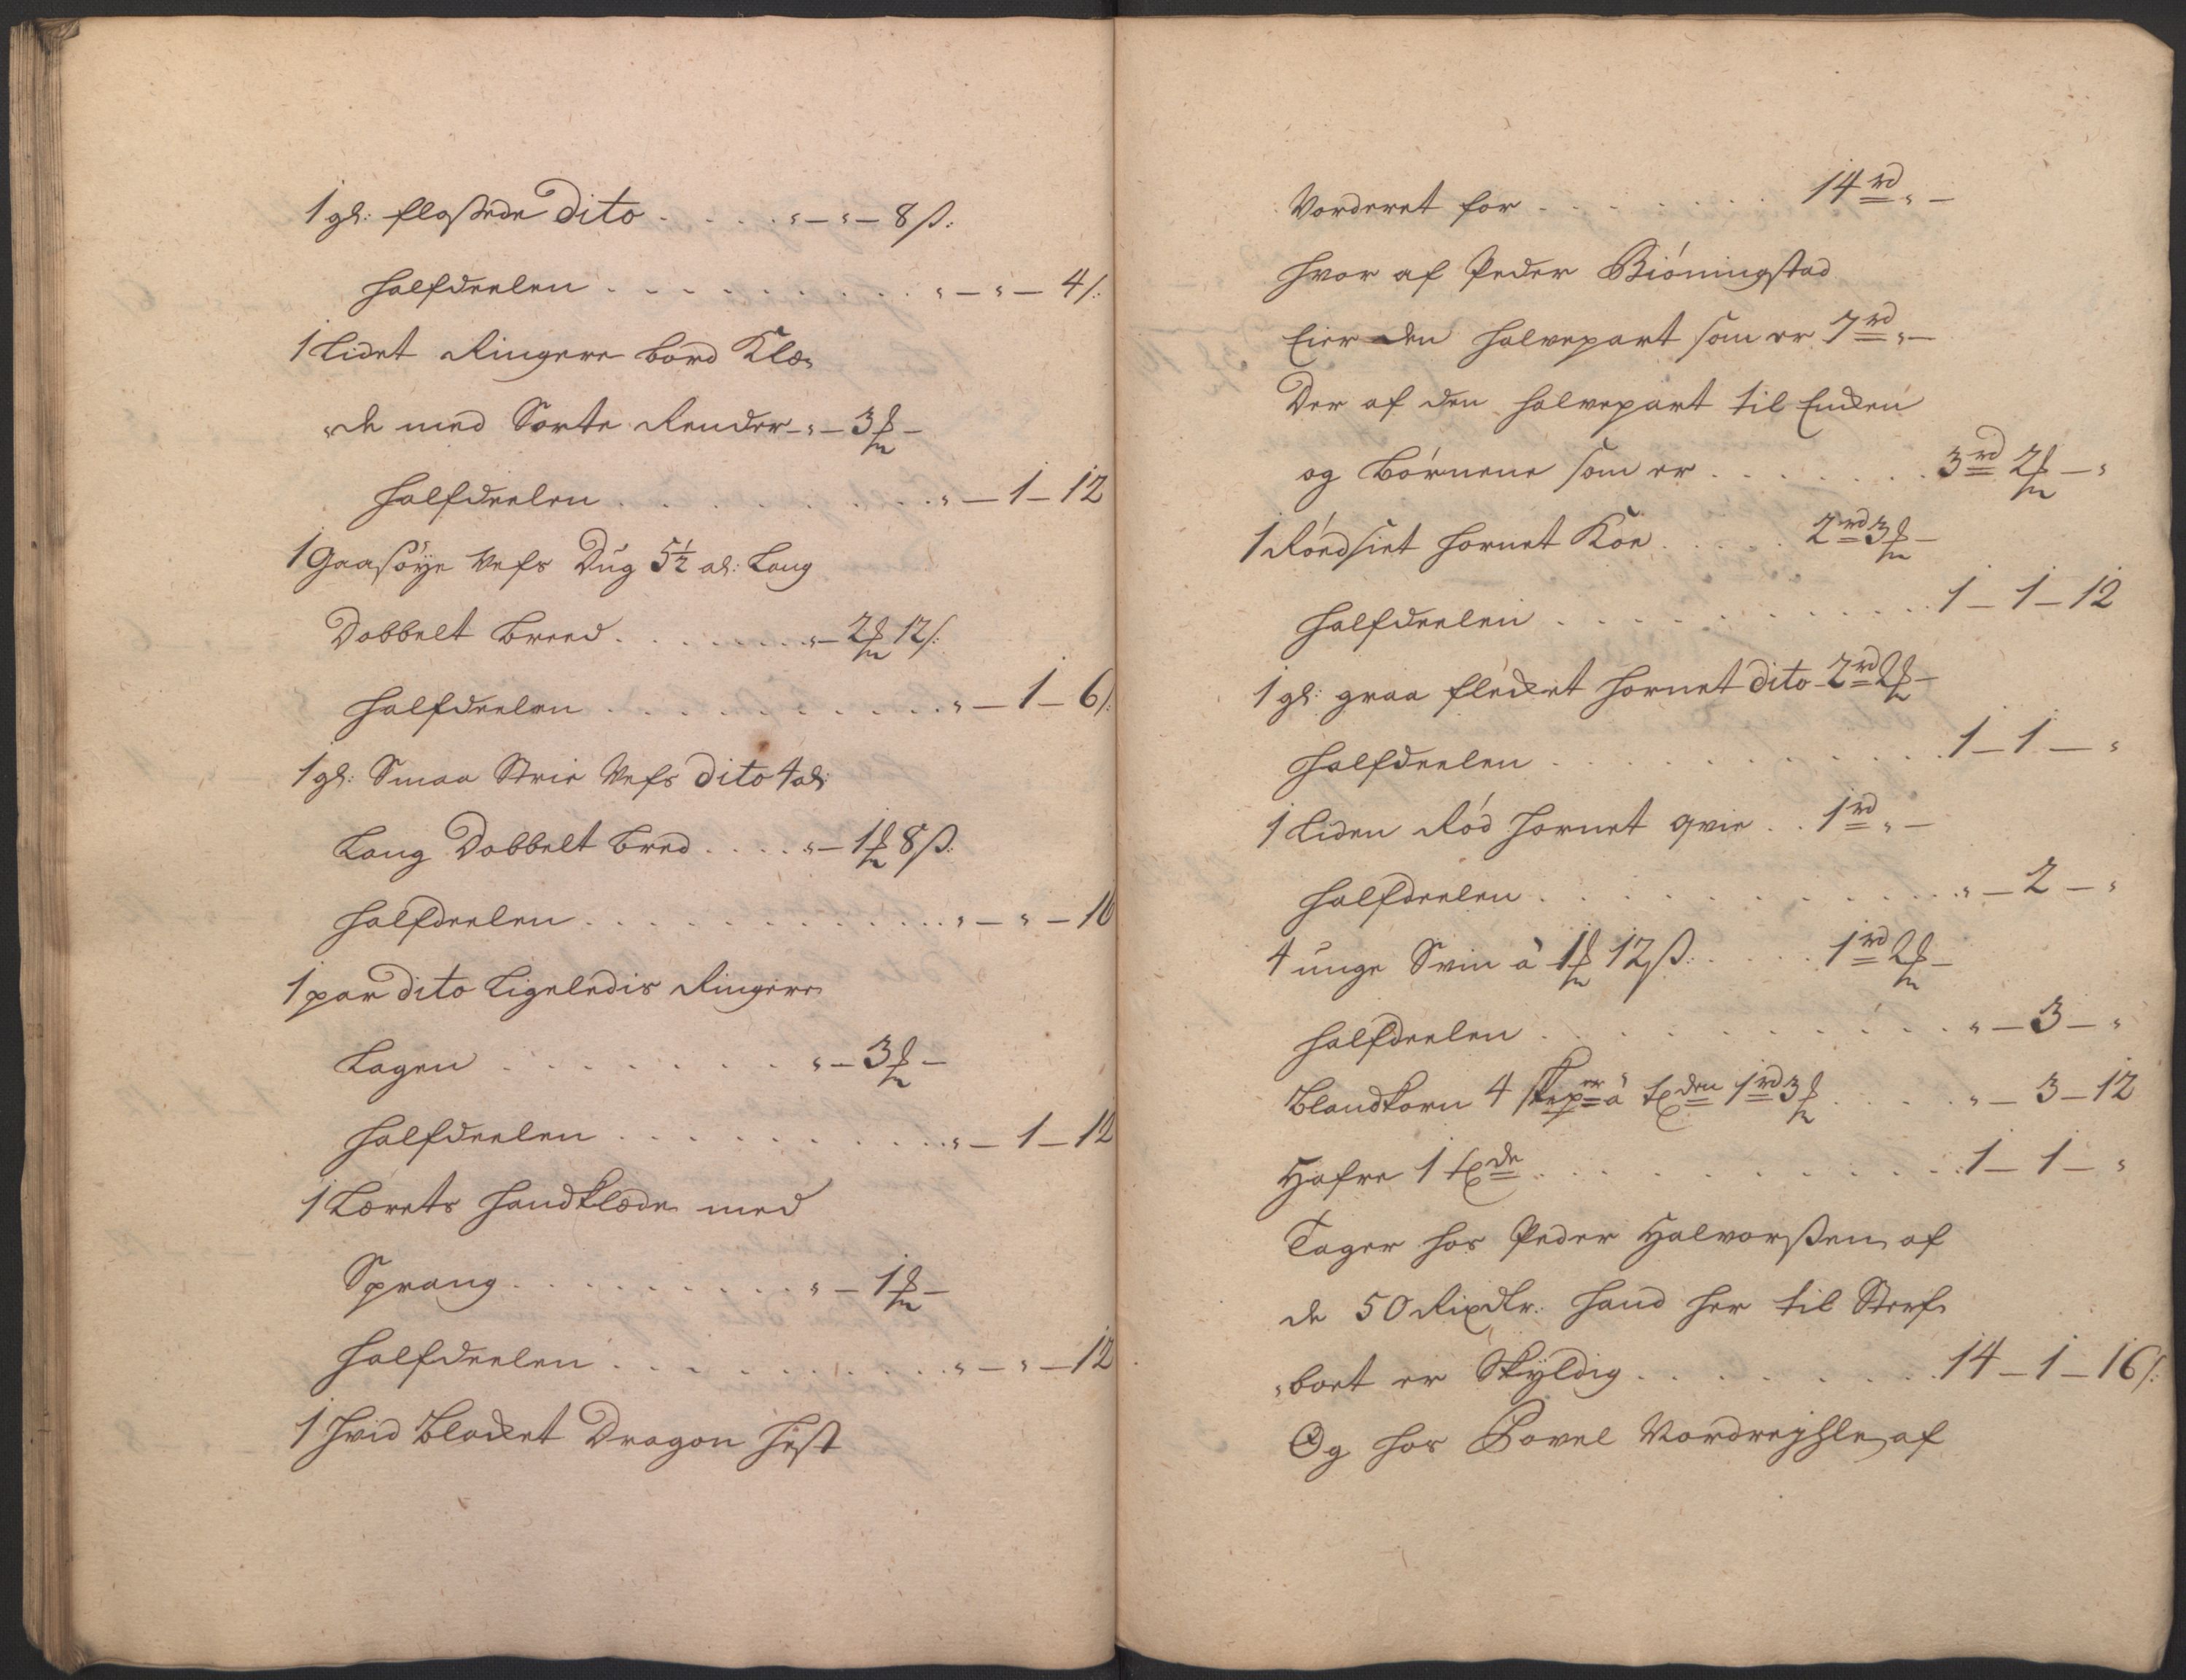 1 gl: flossede dito . . . . . „ — „ — 8 ß:
Halfdeelen . . . . . . . . . „ — „ — 4 ß:
1 Lidet Ringere bord Klæ„
„de med Sorte Render — „ — 3 ₰ —
Halfdeelen . . . . . . . . . „ — 1 — 12
1 Gaasöÿe Vefs Dug 5½ al: Lang
Dobbelt breed . . . . . . . „ — 2 ₰ 12 ß:
Halfdeelen . . . . . . . . . „ — 1 — 6 ß:
1 gl: Smaa Strie Vefs dito 4 al:
Lang Dobbelt bred . . . . „ — 1 ₰ 8 ß:
Halfdeelen . . . . . . . . . „ — „ — 16
1 par dito Ligeledis Ringere
Lagen . . . . . . . . „ — 3 ₰ —
Halfdeelen . . . . . . . . . „ — 1 — 12
1 Lærets Handklæde med
Sprang . . . . . . . . „ — 1 ₰ —
Halfdeelen . . . . . . . . . „ — „ — 12
1 Hvid Blacket Dragon Hest
Vorderet for . . . . . . . 14 rd „ —
Hvor af Peder Biöningstad
Eier den halvepart som er 7 rd „ —
Der af den halvepart til Enken
og Börnene som er . . . . . . . 3 rd 2 ₰ — „
1 Rödsiet Hornet Koe . . . . . 2 rd 3 ₰ —
Halfdeelen . . . . . . . . . 1 — 1 — 12
1 gl: graa flecket Hornet dito 2 rd 2 ₰ —
Halfdeelen . . . . . . . . . 1 — 1 — „
1 Liden Röd Hornet qvie . . 1 rd „ —
Halfdeelen . . . . . . . . . „ — 2 — „
4 unge Svin à 1 ₰ 12 ß: . . . . 1 rd 2 ₰ —
Halfdeelen . . . . . . . . . „ — 3 — „
Blandkorn 4 skeper à tden 1 rd 3 ₰ . . . . „ — 3 — 12
Hafre 1 tde . . . . . . . . . 1 — 1 — „
Tager hos Peder Halvorßen af
de 50 Rixdlr. Hand her til Sterf„
„boet er Skÿldig . . . . . . . 14 — 1 — 16 ß:
Og hos Povel af